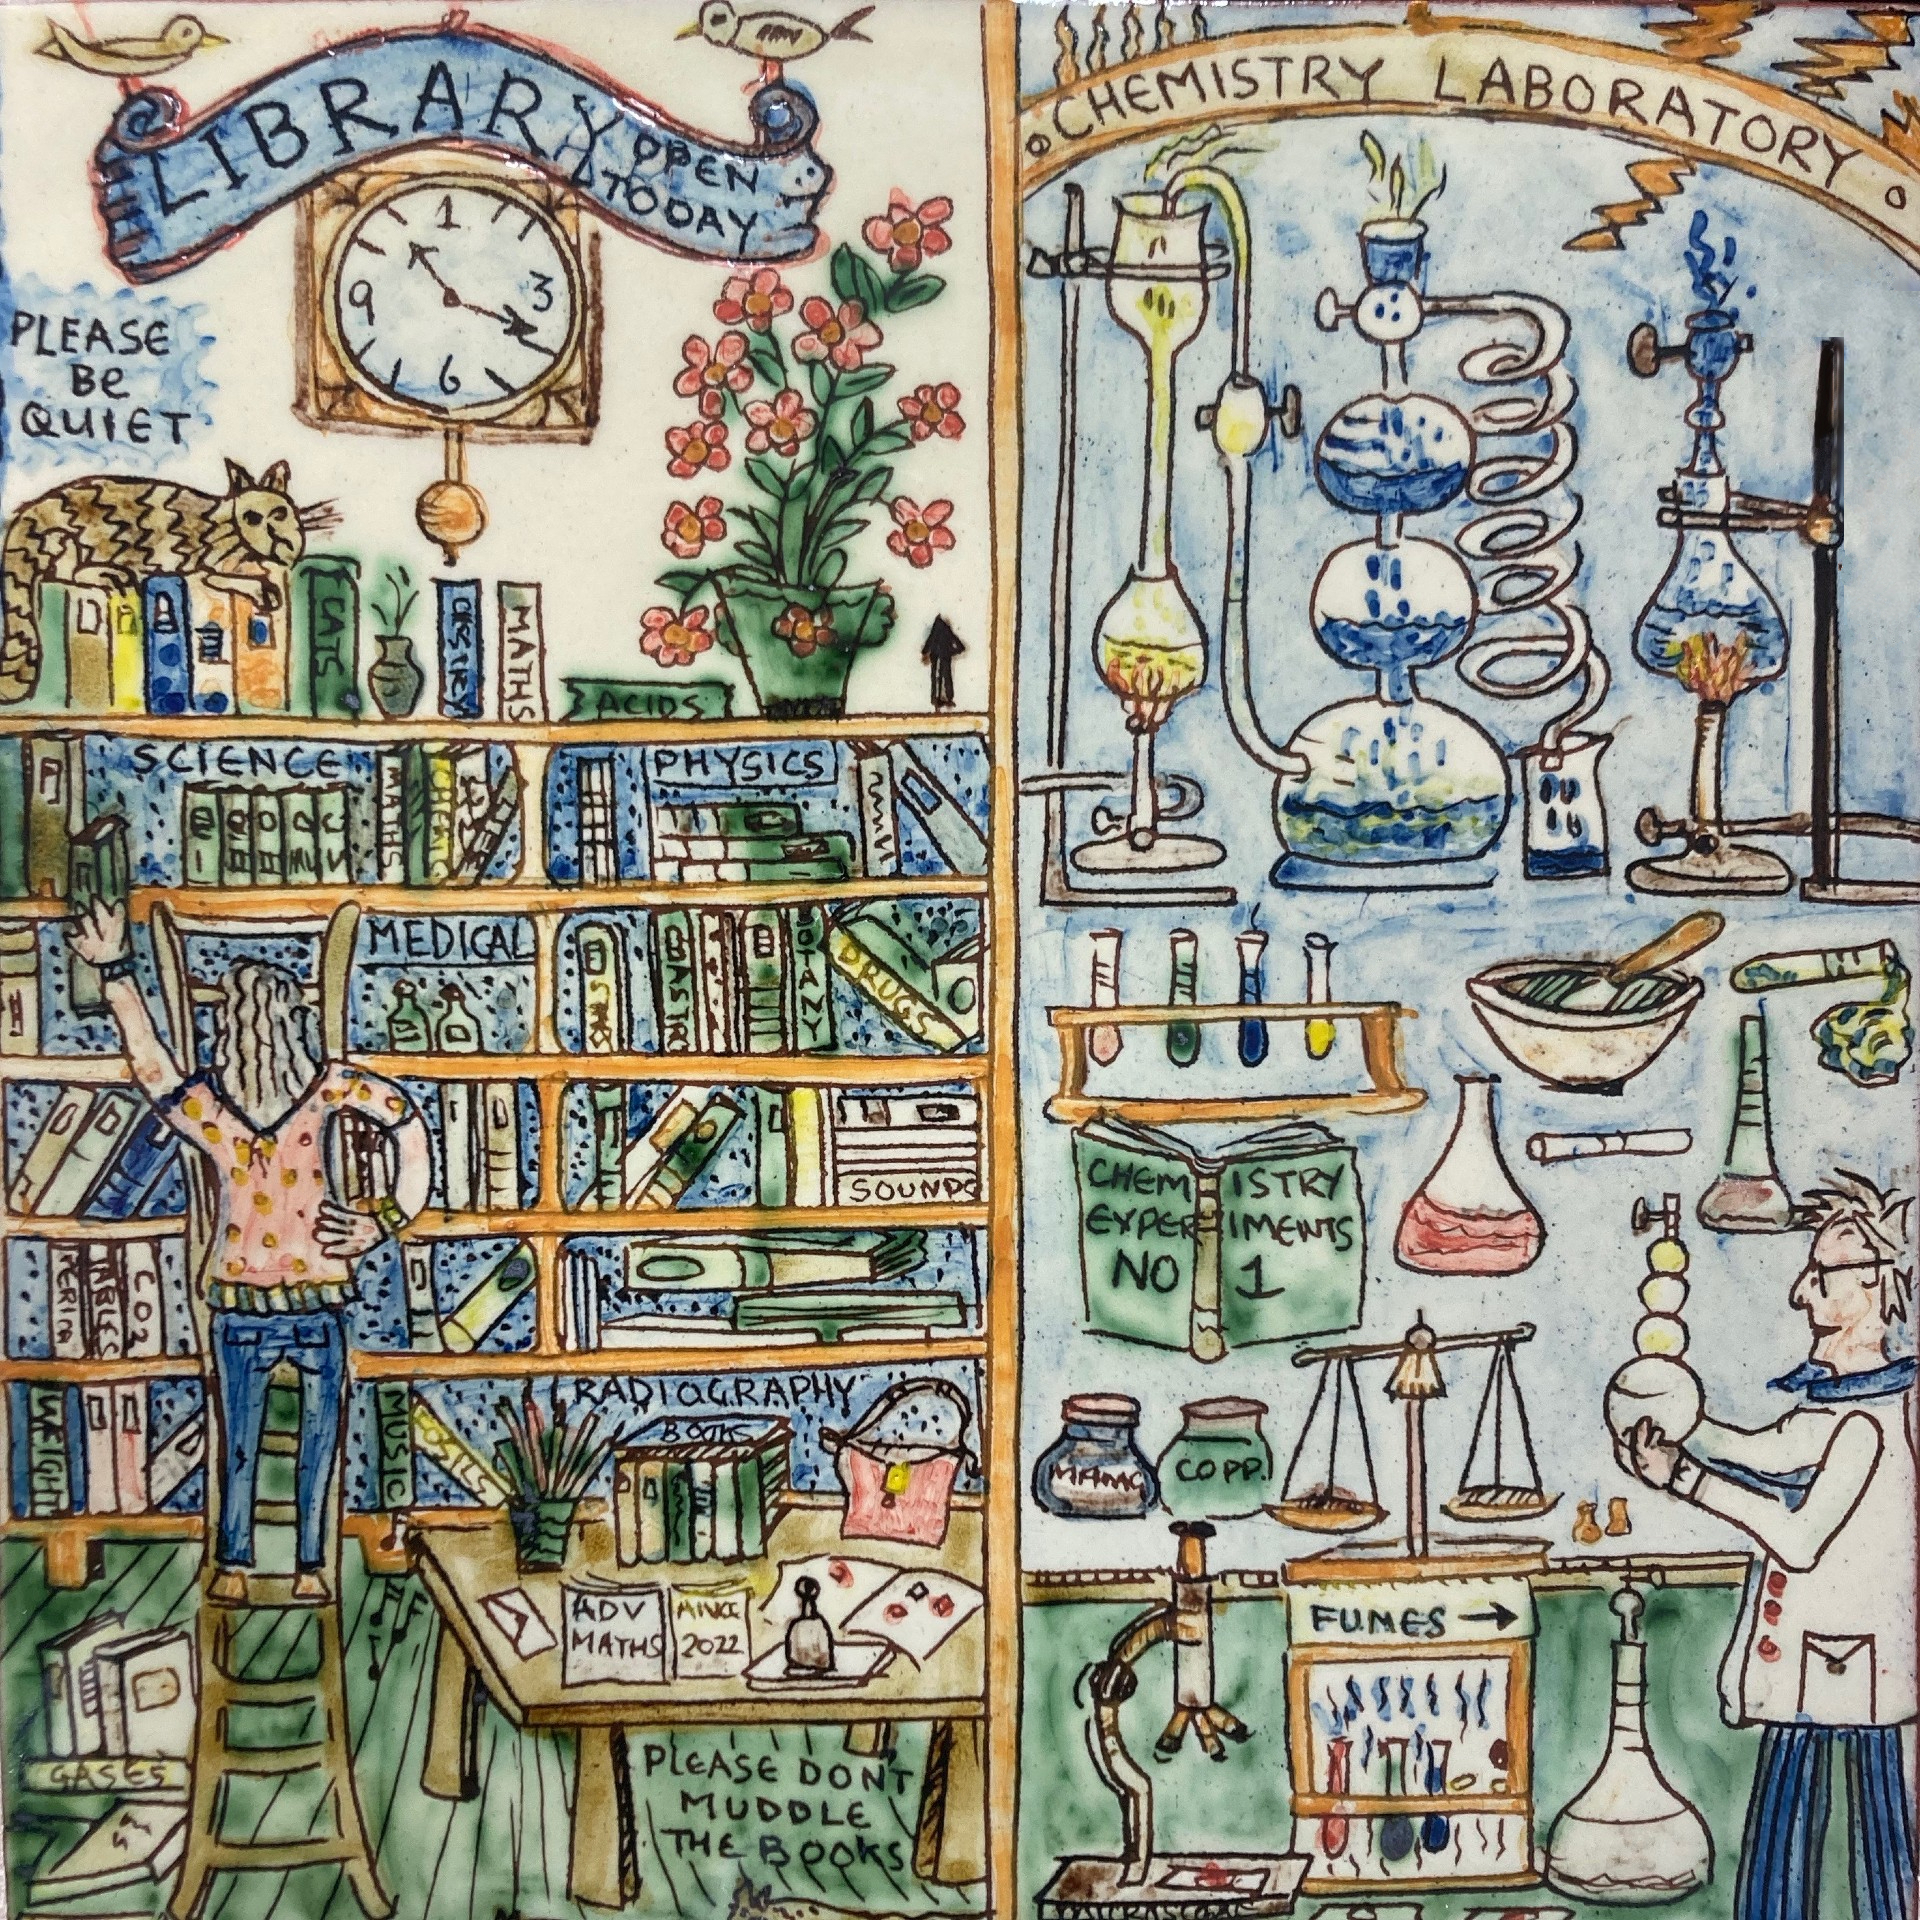 LIBRARY
OPEN
TODAY
1
3
6
9
PLEASE
Be
QUIET
CATS
MATHS
ACIDS
SCIENCE
MATHS
PHYSICS
MEDICAL
BOTANY
DRUGS
SOUNDS
CO2
WEIGHT
MUSIC
RADIOGRAPHY
BOOKS
ADV
MATHS
2022
GASES
PLEASE DON'T
MUDDLE
THE BOOKS
CHEMISTRY LABORATORY
CHEMISTRY
EXPERIMENTS
NO 1
COPP.
FUMES →